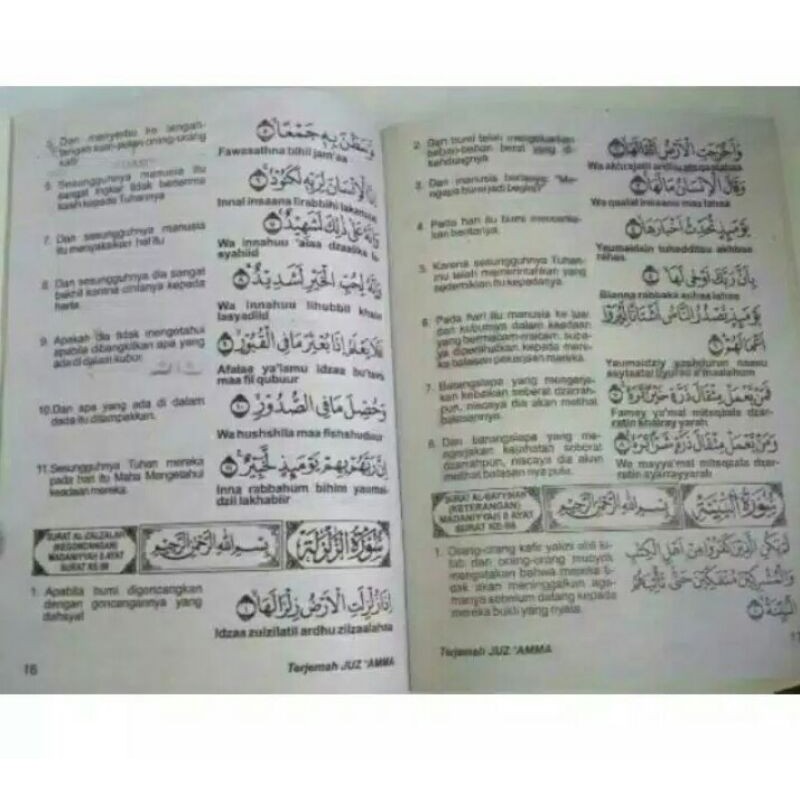 5. Dan menyerbu ke tengah-
وَسَطْنَ بِهِ جَمْعًا
Fawasathna bihil jam'aa
6. Sesungguhnya manusia itu
sangat ingkar tidak berterima
kasih kepada Tuhannya
إِنَّ الْإِنْسَانَ لِرَبِّهِ لَكَنُودٌ
Innal insaana lirabbihi lakanuud
7. Dan sesungguhnya manusia
itu menyaksikan hal itu
وَإِنَّهُ عَلَى ذَلِكَ لَشَهِيدٌ
Wa innahuu 'alaa dzaalika la
syahiid
8. Dan sesungguhnya dia sangat
bakhil karena cintanya kepada
harta.
وَإِنَّهُ لِحُبِّ الْخَيْرِ لَشَدِيدٌ
Wa innahuu lihubbil khairi
lasyadiid
9. Apakah dia tidak mengetahui
apabila dibangkitkan apa yang
ada di dalam kubur
أَفَلَا يَعْلَمُ إِذَا بُعْثِرَ مَا فِي الْقُبُورِ
Afalaa ya'lamu idzaa bu'tsira
maa fil qubuur
10. Dan apa yang ada di dalam
dada itu ditampakkan.
وَحُصِّلَ مَا فِي الصُّدُورِ
Wa hushshila maa fishshuduur
11. Sesungguhnya Tuhan mereka
pada hari itu Maha Mengetahui
keadaan mereka.
إِنَّ رَبَّهُمْ بِهِمْ يَوْمَئِذٍ لَخَبِيرٌ
Inna rabbahum bihim yaumai-
dzil lakhabiir
SURAT AL-ZALZALAH
(KEGONCANGAN)
MADANIYYAH 8 AYAT
SURAT KE-99
بِسْمِ اللهِ الرَّحْمَنِ الرَّحِيمِ
سُورَةُ الزَّلْزَلَةِ
1. Apabila bumi digoncangkan
dengan goncangannya yang
dahsyat
إِذَا زُلْزِلَتِ الْأَرْضُ زِلْزَالَهَا
Idzaa zulzilatil ardhu zilzaalahaa
16
Terjemah JUZ 'AMMA
2. Dan bumi telah mengeluarkan
beban-beban berat yang di-
kandungnya
وَأَخْرَجَتِ الْأَرْضُ أَثْقَالَهَا
Wa akhrajatil ardhu atsqaalahaa
3. Dan manusia bertanya: "Me-
ngapa bumi jadi begini?"
وَقَالَ الْإِنْسَانُ مَا لَهَا
Wa qaalal insaanu maa lahaa
4. Pada hari itu bumi mencerita-
kan beritanya.
يَوْمَئِذٍ تُحَدِّثُ أَخْبَارَهَا
Yaumaidzin tuhadditsu akhbaa
rahaa
5. Karena sesungguhnya Tuhan-
mu telah memerintahkan yang
sedemikian itu kepadanya.
بِأَنَّ رَبَّكَ أَوْحَى لَهَا
Bianna rabbaka auhaa lahaa
6. Pada hari itu manusia ke luar
dari kuburnya dalam keadaan
yang bermacam-macam, supa-
ya diperlihatkan kepada mereka
balasan pekerjaan mereka.
يَوْمَئِذٍ يَصْدُرُ النَّاسُ أَشْتَاتًا لِيُرَوْا
أَعْمَالَهُمْ
Yaumaidziy yashdurun naasu
asytaatal liyurau a'maalahum
7. Barangsiapa yang mengerja-
kan kebaikan seberat dzarrah-
pun, niscaya dia akan melihat
balasannya.
فَمَنْ يَعْمَلْ مِثْقَالَ ذَرَّةٍ خَيْرًا يَرَهُ
Famay ya'mal mitsqiala dzar-
ratin khairay yarah
8. Dan barangsiapa yang me-
ngerjakan kejahatan seberat
dzarrahpun, niscaya dia akan
melihat balasannya pula.
وَمَنْ يَعْمَلْ مِثْقَالَ ذَرَّةٍ شَرًّا يَرَهُ
Wa mayya'mal mitsqala dzar-
ratin syarrayyarah
SURAT AL-BAYYINAH
(KETERANGAN)
MADANIYYAH 8 AYAT
SURAT KE-98
بِسْمِ اللهِ الرَّحْمَنِ الرَّحِيمِ
سُورَةُ الْبَيِّنَةِ
1. Orang-orang kafir yakni ahli ki-
tab dan orang-orang musyrik
mengatakan bahwa mereka ti-
dak akan meninggalkan aga-
manya sebelum datang kepada
mereka bukti yang nyata.
لَمْ يَكُنِ الَّذِينَ كَفَرُوا مِنْ أَهْلِ الْكِتَابِ
وَالْمُشْرِكِينَ مُنْفَكِّينَ حَتَّى تَأْتِيَهُمُ
الْبَيِّنَةُ
Terjemah JUZ 'AMMA